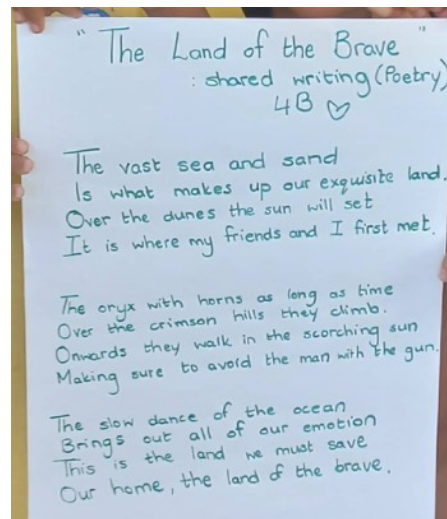 "The Land of the Brave"
: shared writing (Poetry)
4B
The vast sea and sand
Is what makes up our exquisite land.
Over the dunes the sun will set
It is where my friends and I first met.
The oryx with horns as long as time
Over the crimson hills they climb.
Onwards they walk in the scorching sun
Making sure to avoid the man with the gun.
The slow dance of the ocean
Brings out all of our emotion
This is the land we must save
Our home, the land of the brave.